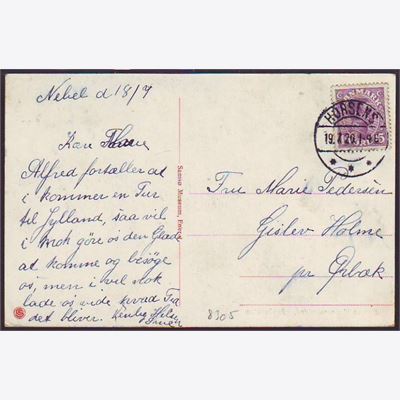 Nebel d 18/7
Kære
Alfred fortæller at
i kommer en Tur
til Jylland, saa vil
i nok göre os den Glæde
at komme og besöge
os, men i vil nok
lade os vide hvad Tid
det bliver. Kærlig Hilsen
Samsø Museum, Farvepr.
DANMARK
15
HORSENS
19.7.20.1-4
Fru Marie Pedersen
Gislev Holme
pr Ørbæk
8305